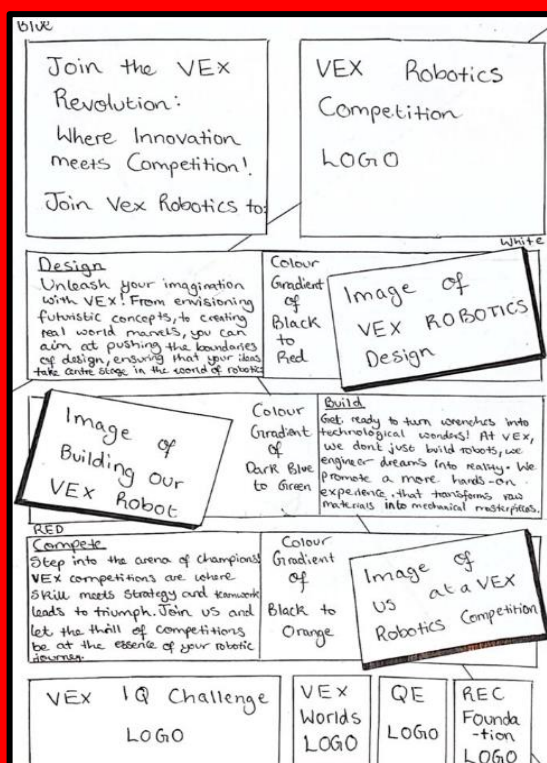 Blue
Join the VEX
Revolution:
Where Innovation
meets Competition!
Join Vex Robotics to:
VEX Robotics
Competition
LOGO
White
Design
Unleash your imagination
with VEX! From envisioning
futuristic concepts, to creating
real world marvels, you can
aim at pushing the boundaries
of design, ensuring that your ideas
take centre stage in the world of robotics
Colour
Gradient
of
Black
to
Red
Image of
VEX ROBOTICS
Design
Image of
Building Our
VEX Robot
Colour
Gradient
of
Dark Blue
to Green
Build
Get ready to turn wrenches into
technological wonders! At VEX,
we don't just build robots, we
engineer dreams into reality. We
promote a more hands-on
experience, that transforms raw
materials into mechanical masterpieces.
RED
Compete
Step into the arena of champions!
VEX competitions are where
skill meets strategy and teamwork
leads to triumph. Join us and
let the thrill of competitions
be at the essence of your robotic
journey.
Colour
Gradient
of
Black to
Orange
Image of
us at a VEX
Robotics Competition
VEX IQ Challenge
LOGO
VEX
Worlds
LOGO
QE
LOGO
REC
Founda
-tion
LOGO